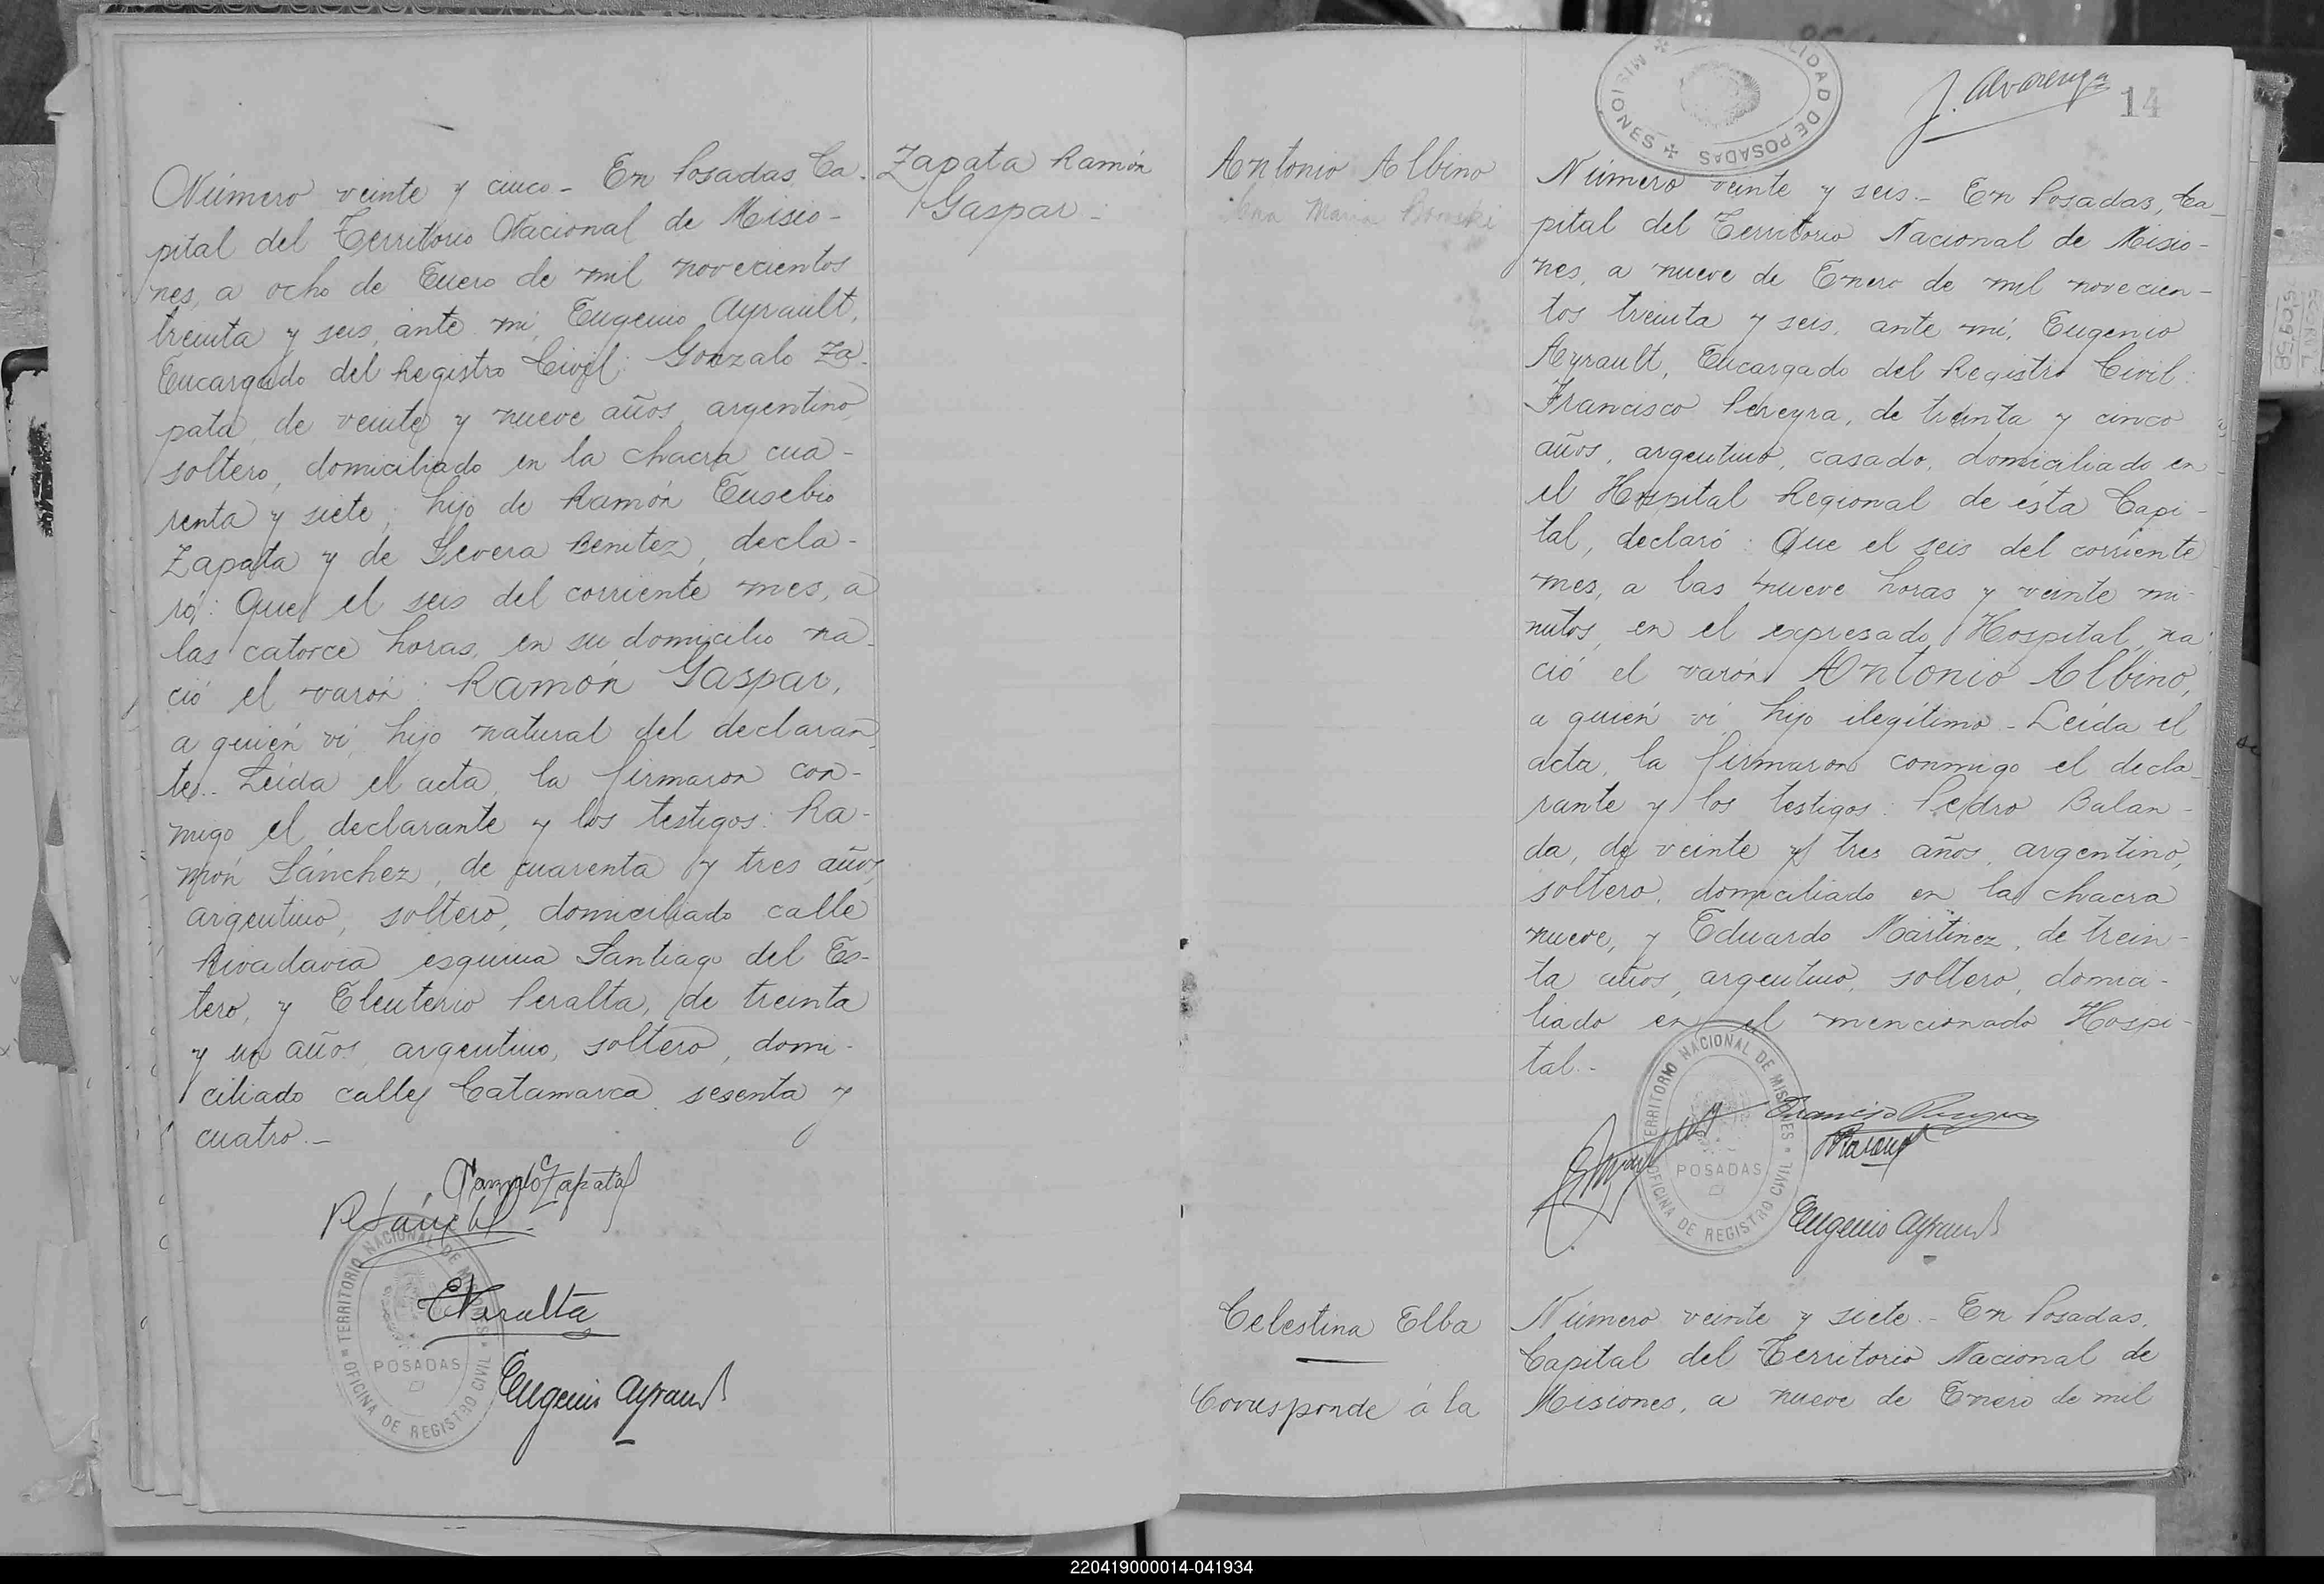 Número veinte y cinco - En Posadas, Ca-
pital del Territorio Nacional de Misio-
nes, a ocho de Enero de mil novecientos
treinta y seis, ante mí, Eugenio Ayrault,
Encargado del Registro Civil: Gonzalo Za-
pata, de veinte y nueve años, argentino,
soltero, domiciliado en la chacra cua-
renta y siete, hijo de Ramón Eusebio
Zapata y de Severa Benitez, decla-
ró: Que el seis del corriente mes, a
las catorce horas, en su domicilio na-
ció el varón: Ramón Gaspar,
a quién ví, hijo natural del declaran-
te.. Leída el acta, la firmaron con-
migo el declarante y los testigos: Ra-
món Sánchez, de cuarenta y tres años,
argentino, soltero, domiciliado calle
Rivadavia esquina Santiago del Es-
tero, y Eleuterio Peralta, de treinta
y un años, argentino, soltero, domi-
ciliado calle Catamarca sesenta y
cuatro.-
Gonzalo Zapata
R Sánchez
EPeralta
Eugenio Ayrault
TERRITORIO NACIONAL DE MISIONES
POSADAS
OFICINA DE REGISTRO CIVIL
Zapata Ramón
Gaspar -
MUNICIPALIDAD DE POSADAS
MISIONES
J. Alvarenga
14
Antonio Albino
Ana Maria
Número veinte y seis.- En Posadas, Ca-
pital del Territorio Nacional de Misio-
nes, a nueve de Enero de mil novecien-
tos treinta y seis, ante mí, Eugenio
Ayrault, Encargado del Registro Civil:
Francisco Pereyra, de treinta y cinco
años, argentino, casado, domiciliado en
el Hospital Regional de ésta Capi-
tal, declaró: Que el seis del corriente
mes, a las nueve horas y veinte mi-
nutos, en el expresado Hospital, na-
ció el varón Antonio Albino,
a quién ví, hijo ilegítimo - Leída el
acta, la firmaron conmigo el decla-
rante y los testigos: Pedro Balan-
da, de veinte y tres años, argentino,
soltero, domiciliado en la chacra
nueve, y Eduardo Martinez, de trein-
ta años, argentino, soltero, domici-
liado en el mencionado Hospi-
tal.-
Francisco Pereyra
Eugenio Ayrault
TERRITORIO NACIONAL DE MISIONES
POSADAS
OFICINA DE REGISTRO CIVIL
Celestina Elba
Corresponde á la
Número veinte y siete.- En Posadas,
Capital del Territorio Nacional de
Misiones, a nueve de Enero de mil
220419000014-041934